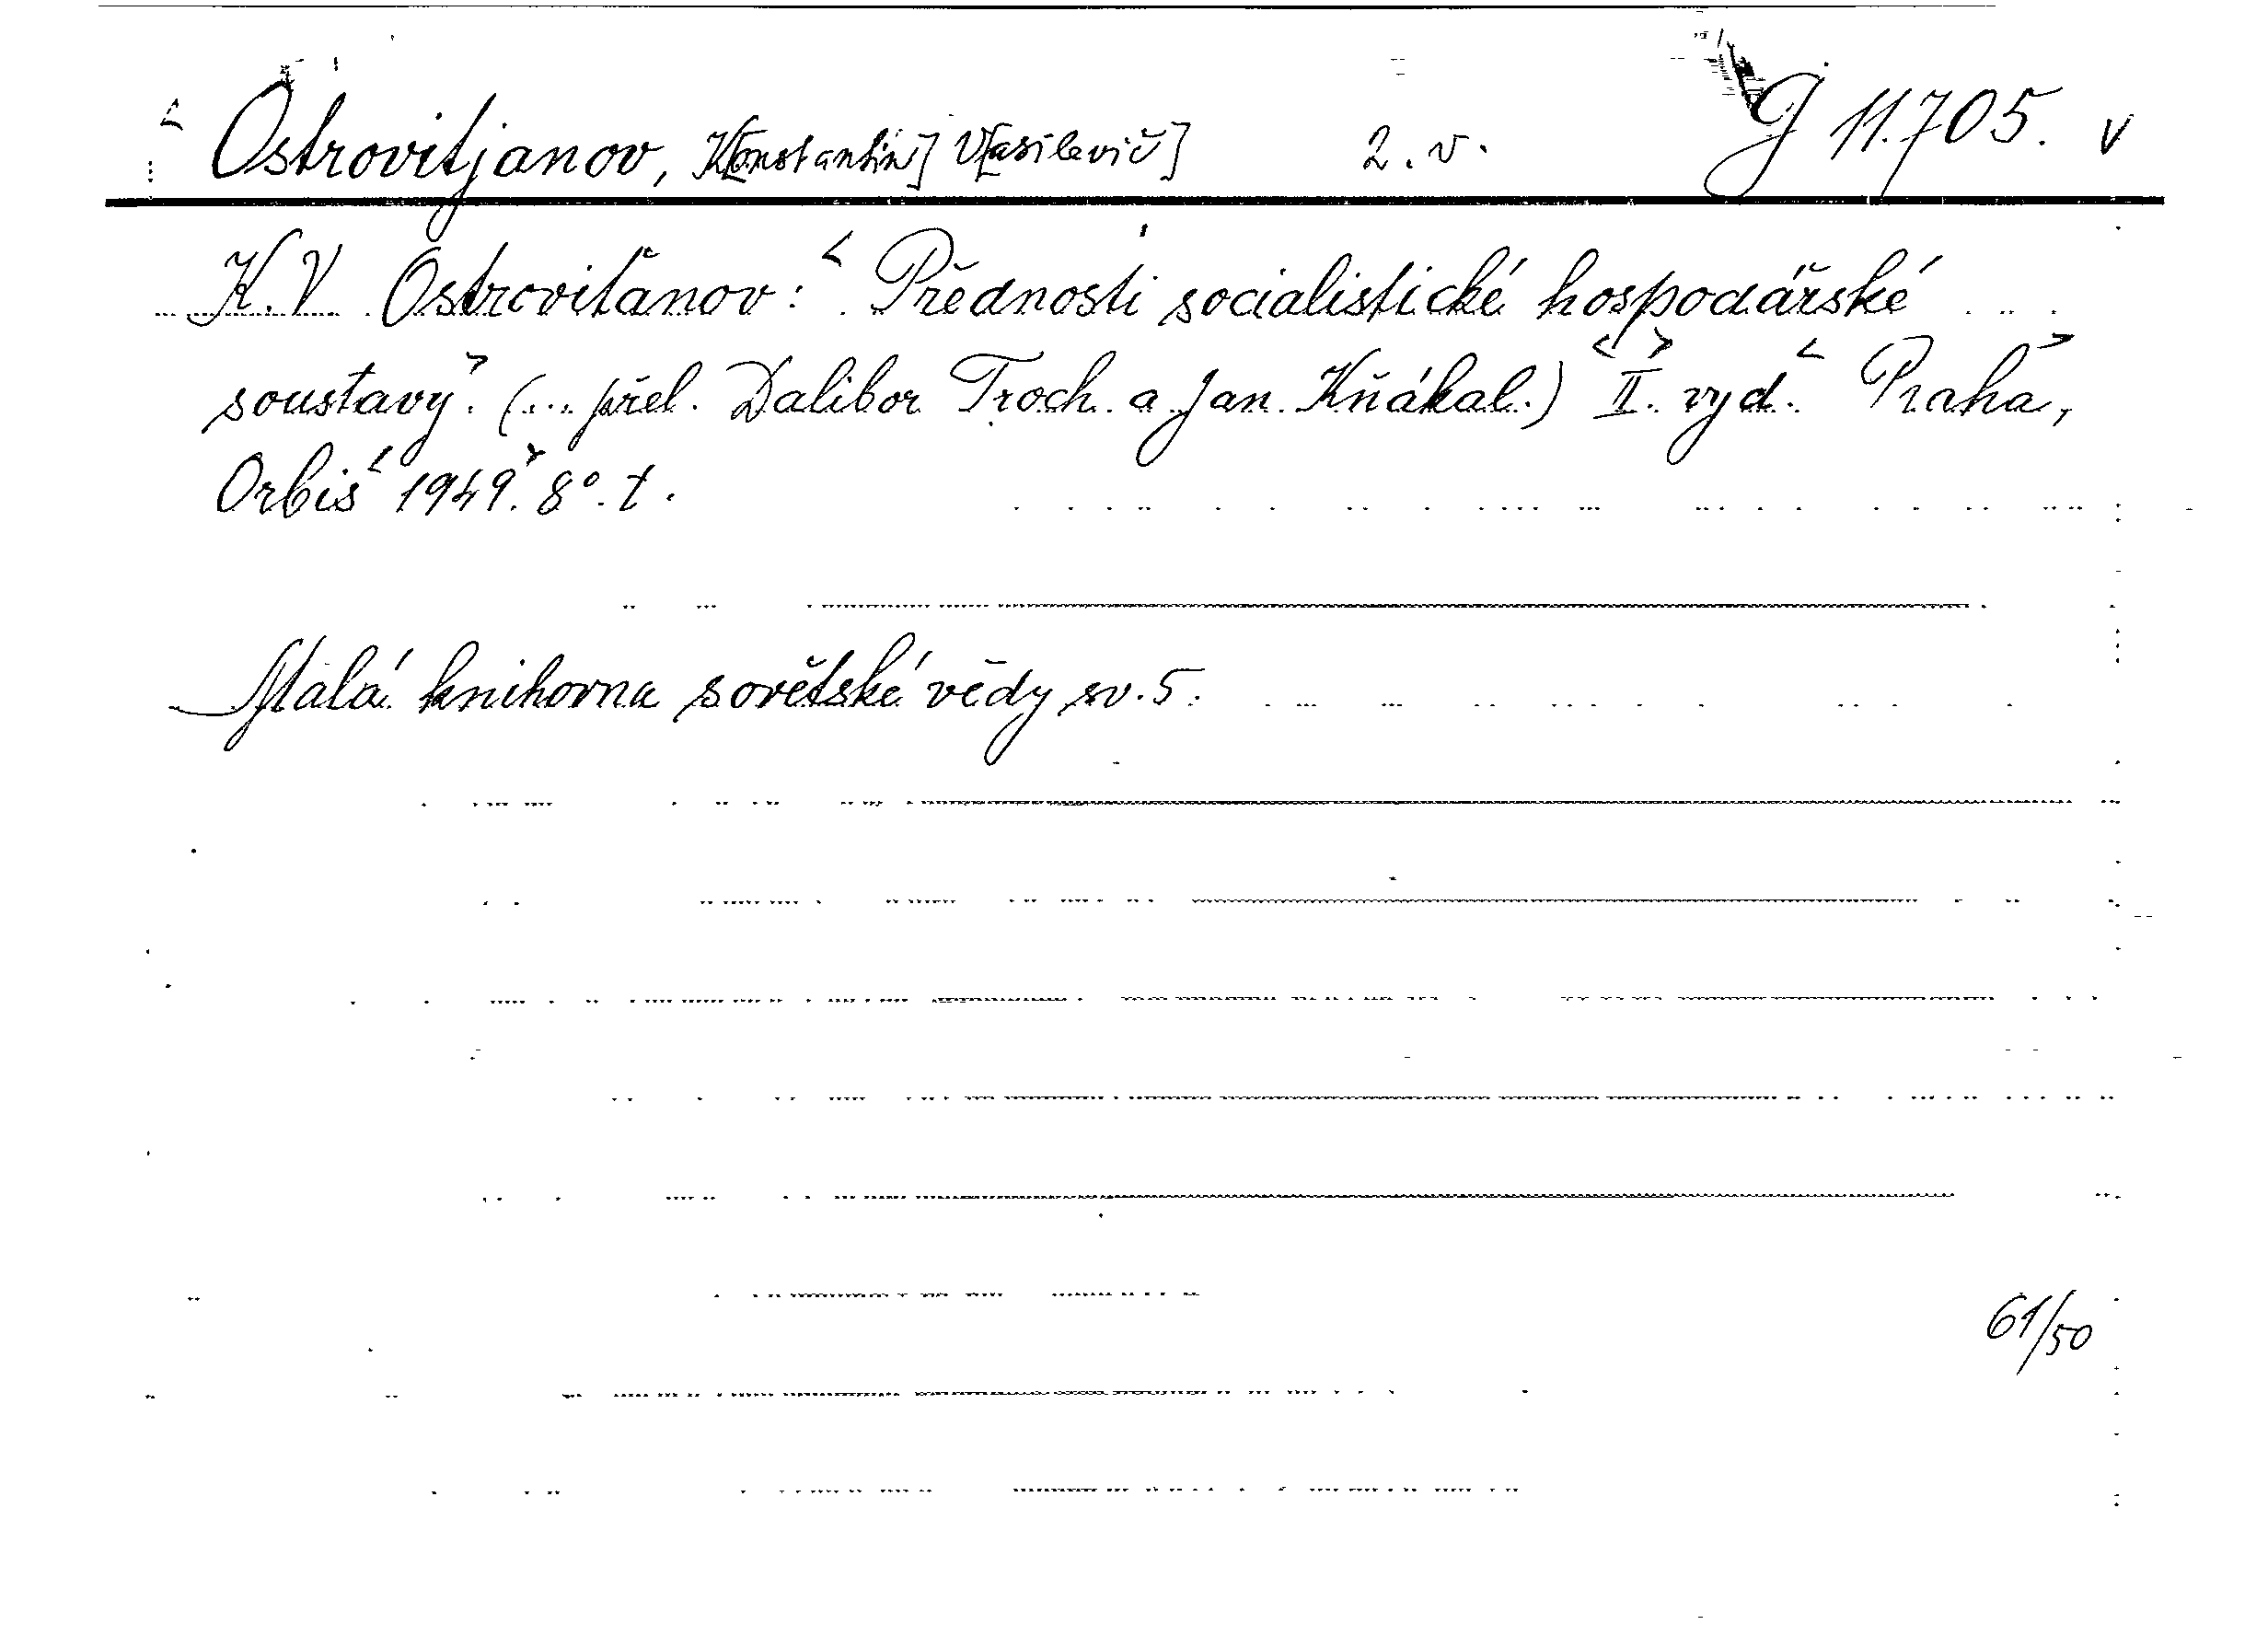 < Ostrovitjanov, K[onstantin] V[asilevič] 2. v. G 11.705. v
K. V. Ostroviťanov: < Přednosti socialistické hospodářské
soustavy.> (... přel. Dalibor Troch a Jan Kňákal.) <II.> vyd. < Praha>,
Orbis < 1949.> 8°. t.
Malá knihovna sovětské vědy sv. 5.
61/50